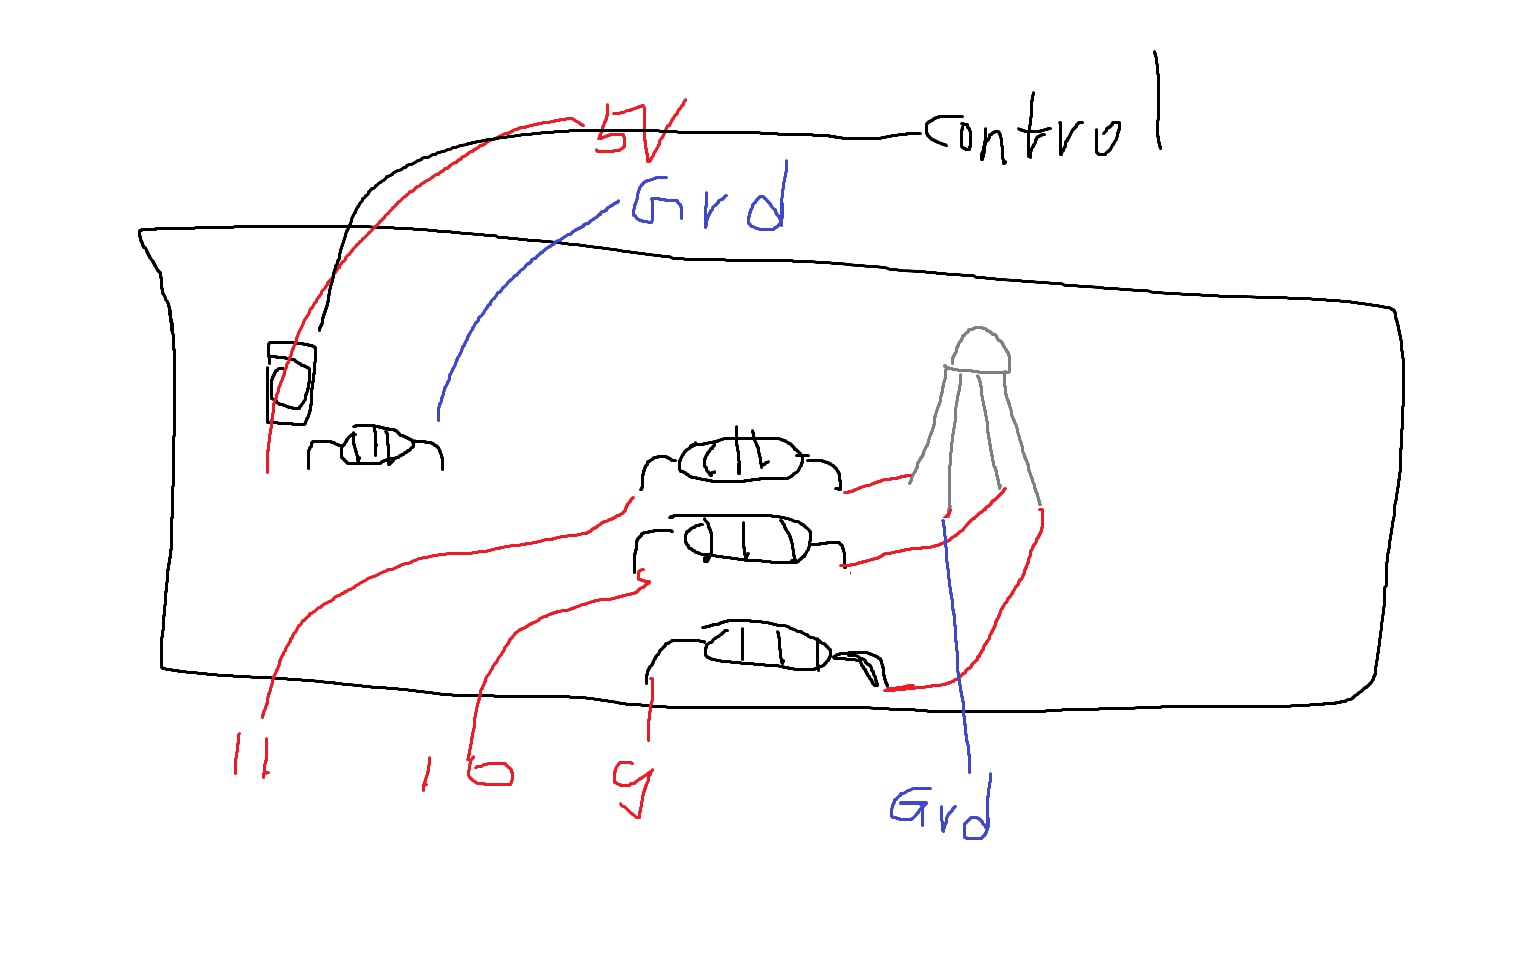 5V
control
Grd
11
10
9
Grd